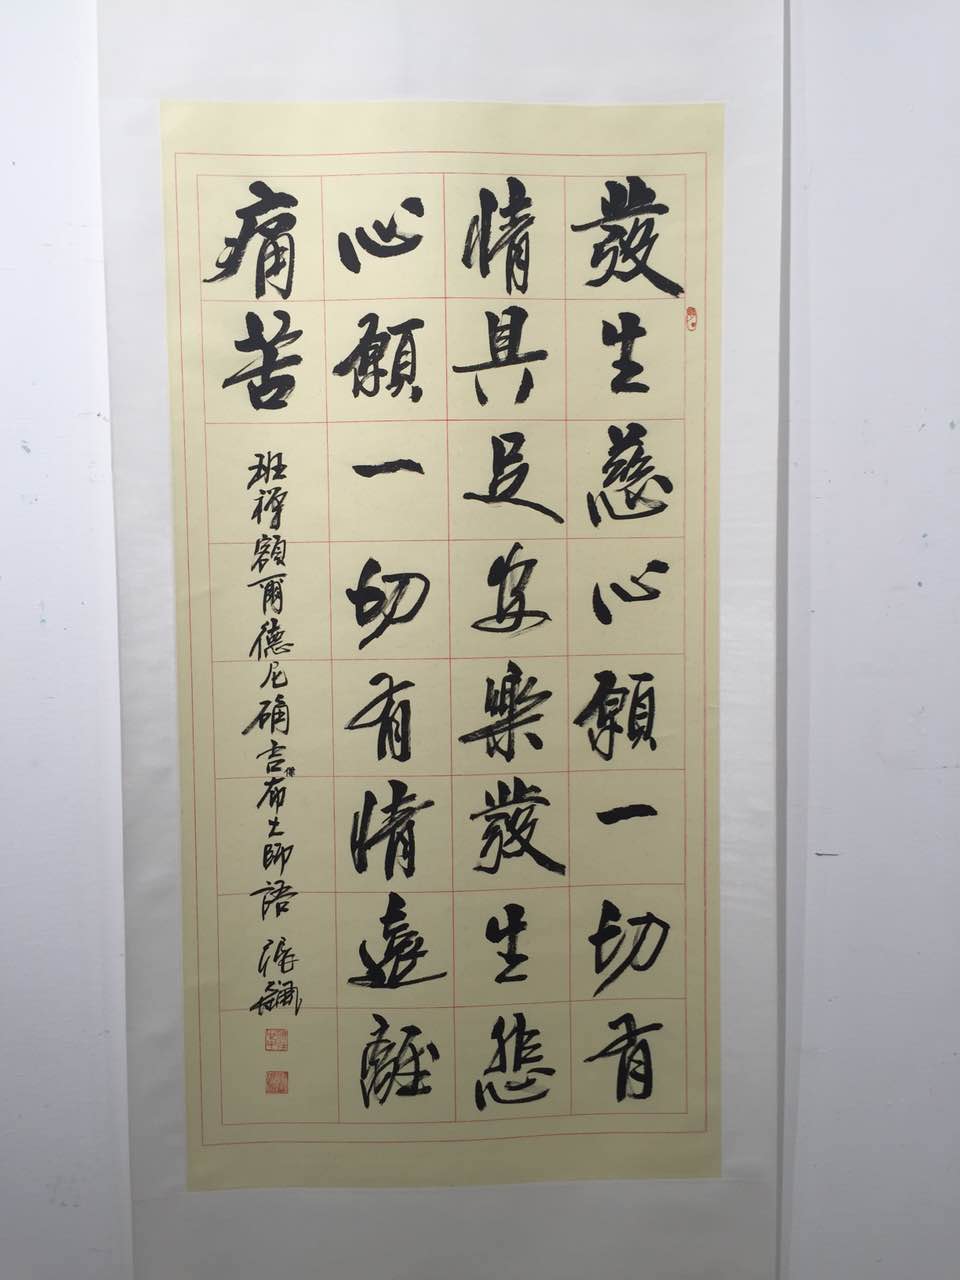 發生慈心願一切有
情具足安樂發生悲
心願一切有情遠離
痛苦
班禪額爾德尼確吉傑布大師語